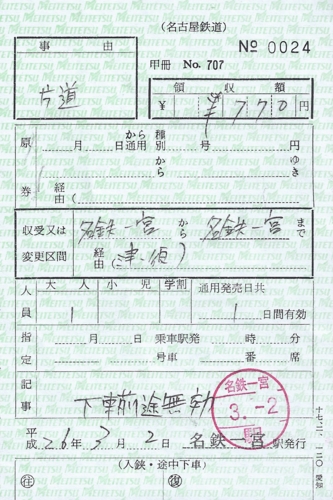 (名古屋鉄道)
事由 甲冊 No. 707 № 0024
片道 領収額
¥ ¥770円
原券 月 日から通用 種別 号 円
から ゆき
経由( )
収受又は変更区間 名鉄一宮から 名鉄一宮まで
経由(津・須)
人員 大人 小児 学割 通用発売日共
1 1日間有効
指定 月 日 乗車駅発 時 分
号車 番 席
記事 下車前途無効
名鉄一宮
3.-2
駅
平成26年3月2日 名鉄一宮駅発行
(入鋏・途中下車)
往 復
十七・二・二〇 愛知
MEITETSU